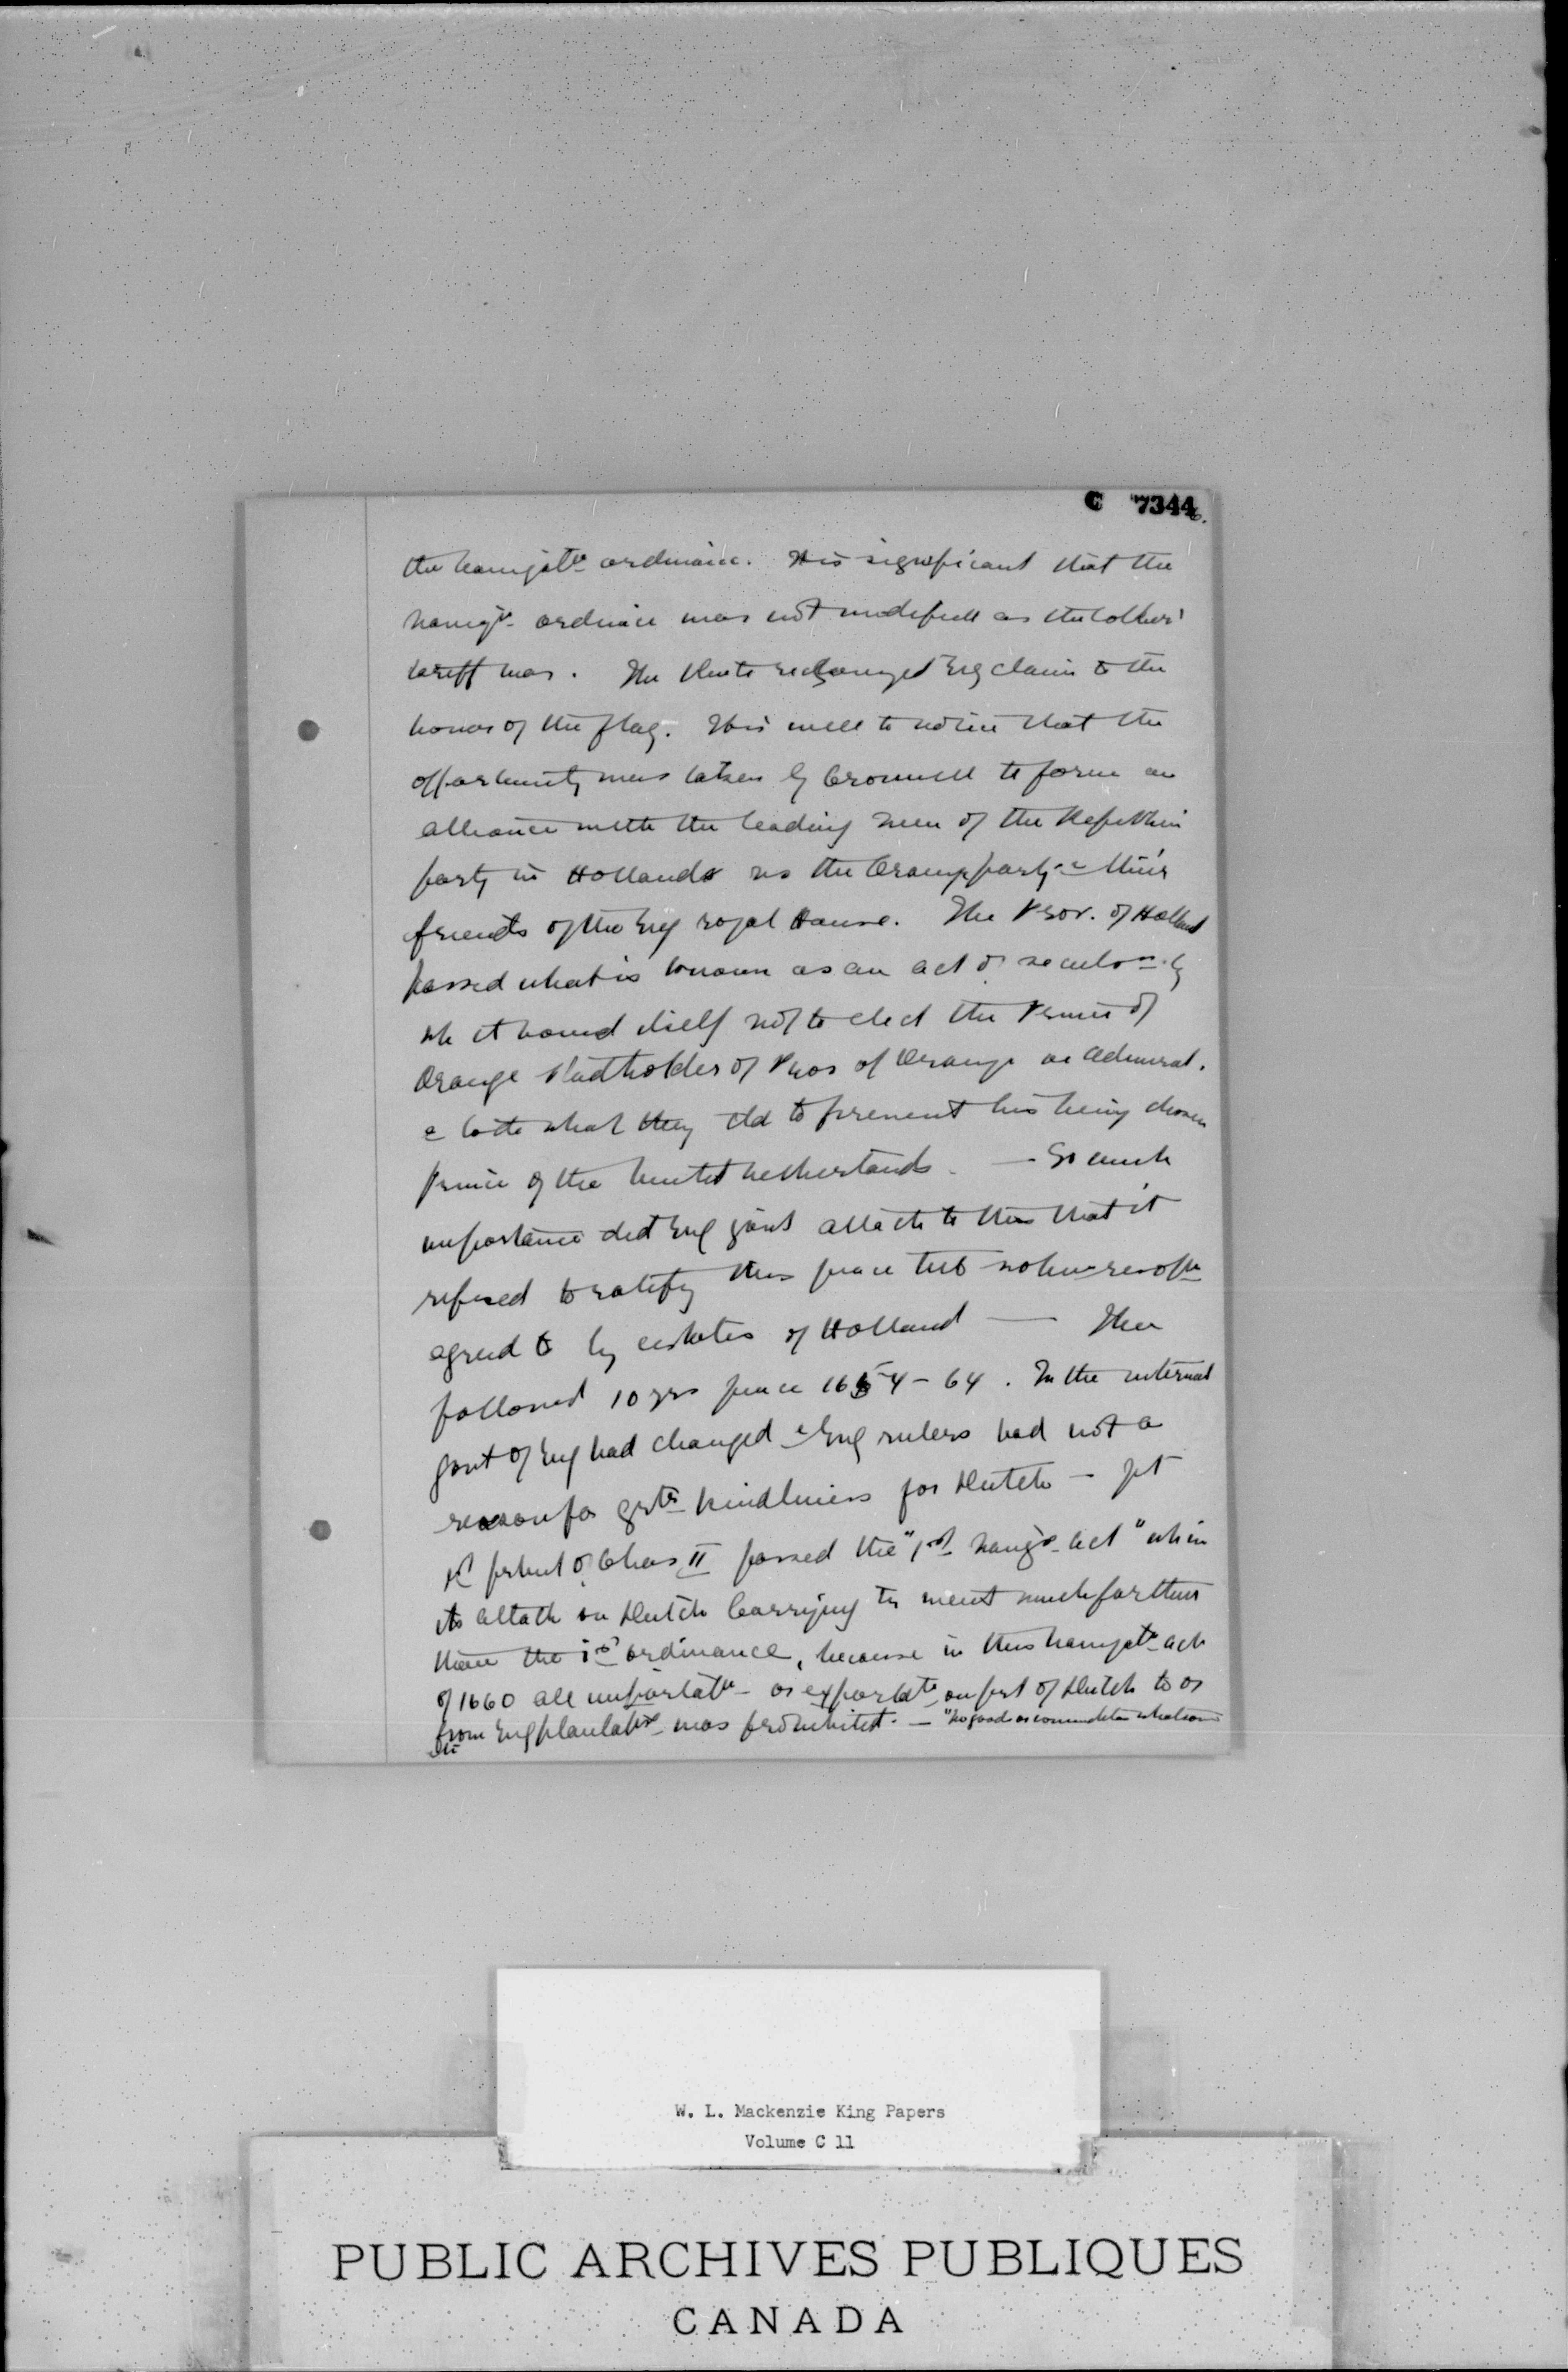 C 7344
6.
the navigatn ordinance. It is significant that the
navign ordinance was not modified as the other
tariff was. The Dutch recognized Eng claim to the
honor of the flag. It is well to notice that the
opportunity was taken by Cromwell to form an
alliance with the leading men of the Republican
party in Holland vs the Orange party
friends of the Eng royal House. The Prov. of Holland
passed what is known as an act of seclusn by
wh it bound itself not to elect the Prince of
Orange Stadtholder of Prov of Orange or Admiral.
& to do what they cld to prevent his being chosen
Prince of the United Netherlands. — So much
importance did Eng govt attach to this that it
refused to ratify this peace till
agreed to by estates of Holland — Then
followed 10 yrs peace 1654 - 64. In the interval
govt of Eng had changed & Eng rulers had not a
reason for grtr kindliness for Dutch — yet
1st parlmt of Chas II passed the "1st navign act" wh in
its attack on Dutch carrying tr went much farther
than the 1st ordinance, because in this navigatn act
of 1660 all importatn or exportatn on part of Dutch to or
from Eng plantatns was prohibited. — "No goods or commodities whatsoever
W. L. Mackenzie King Papers
Volume C 11
PUBLIC ARCHIVES PUBLIQUES
CANADA